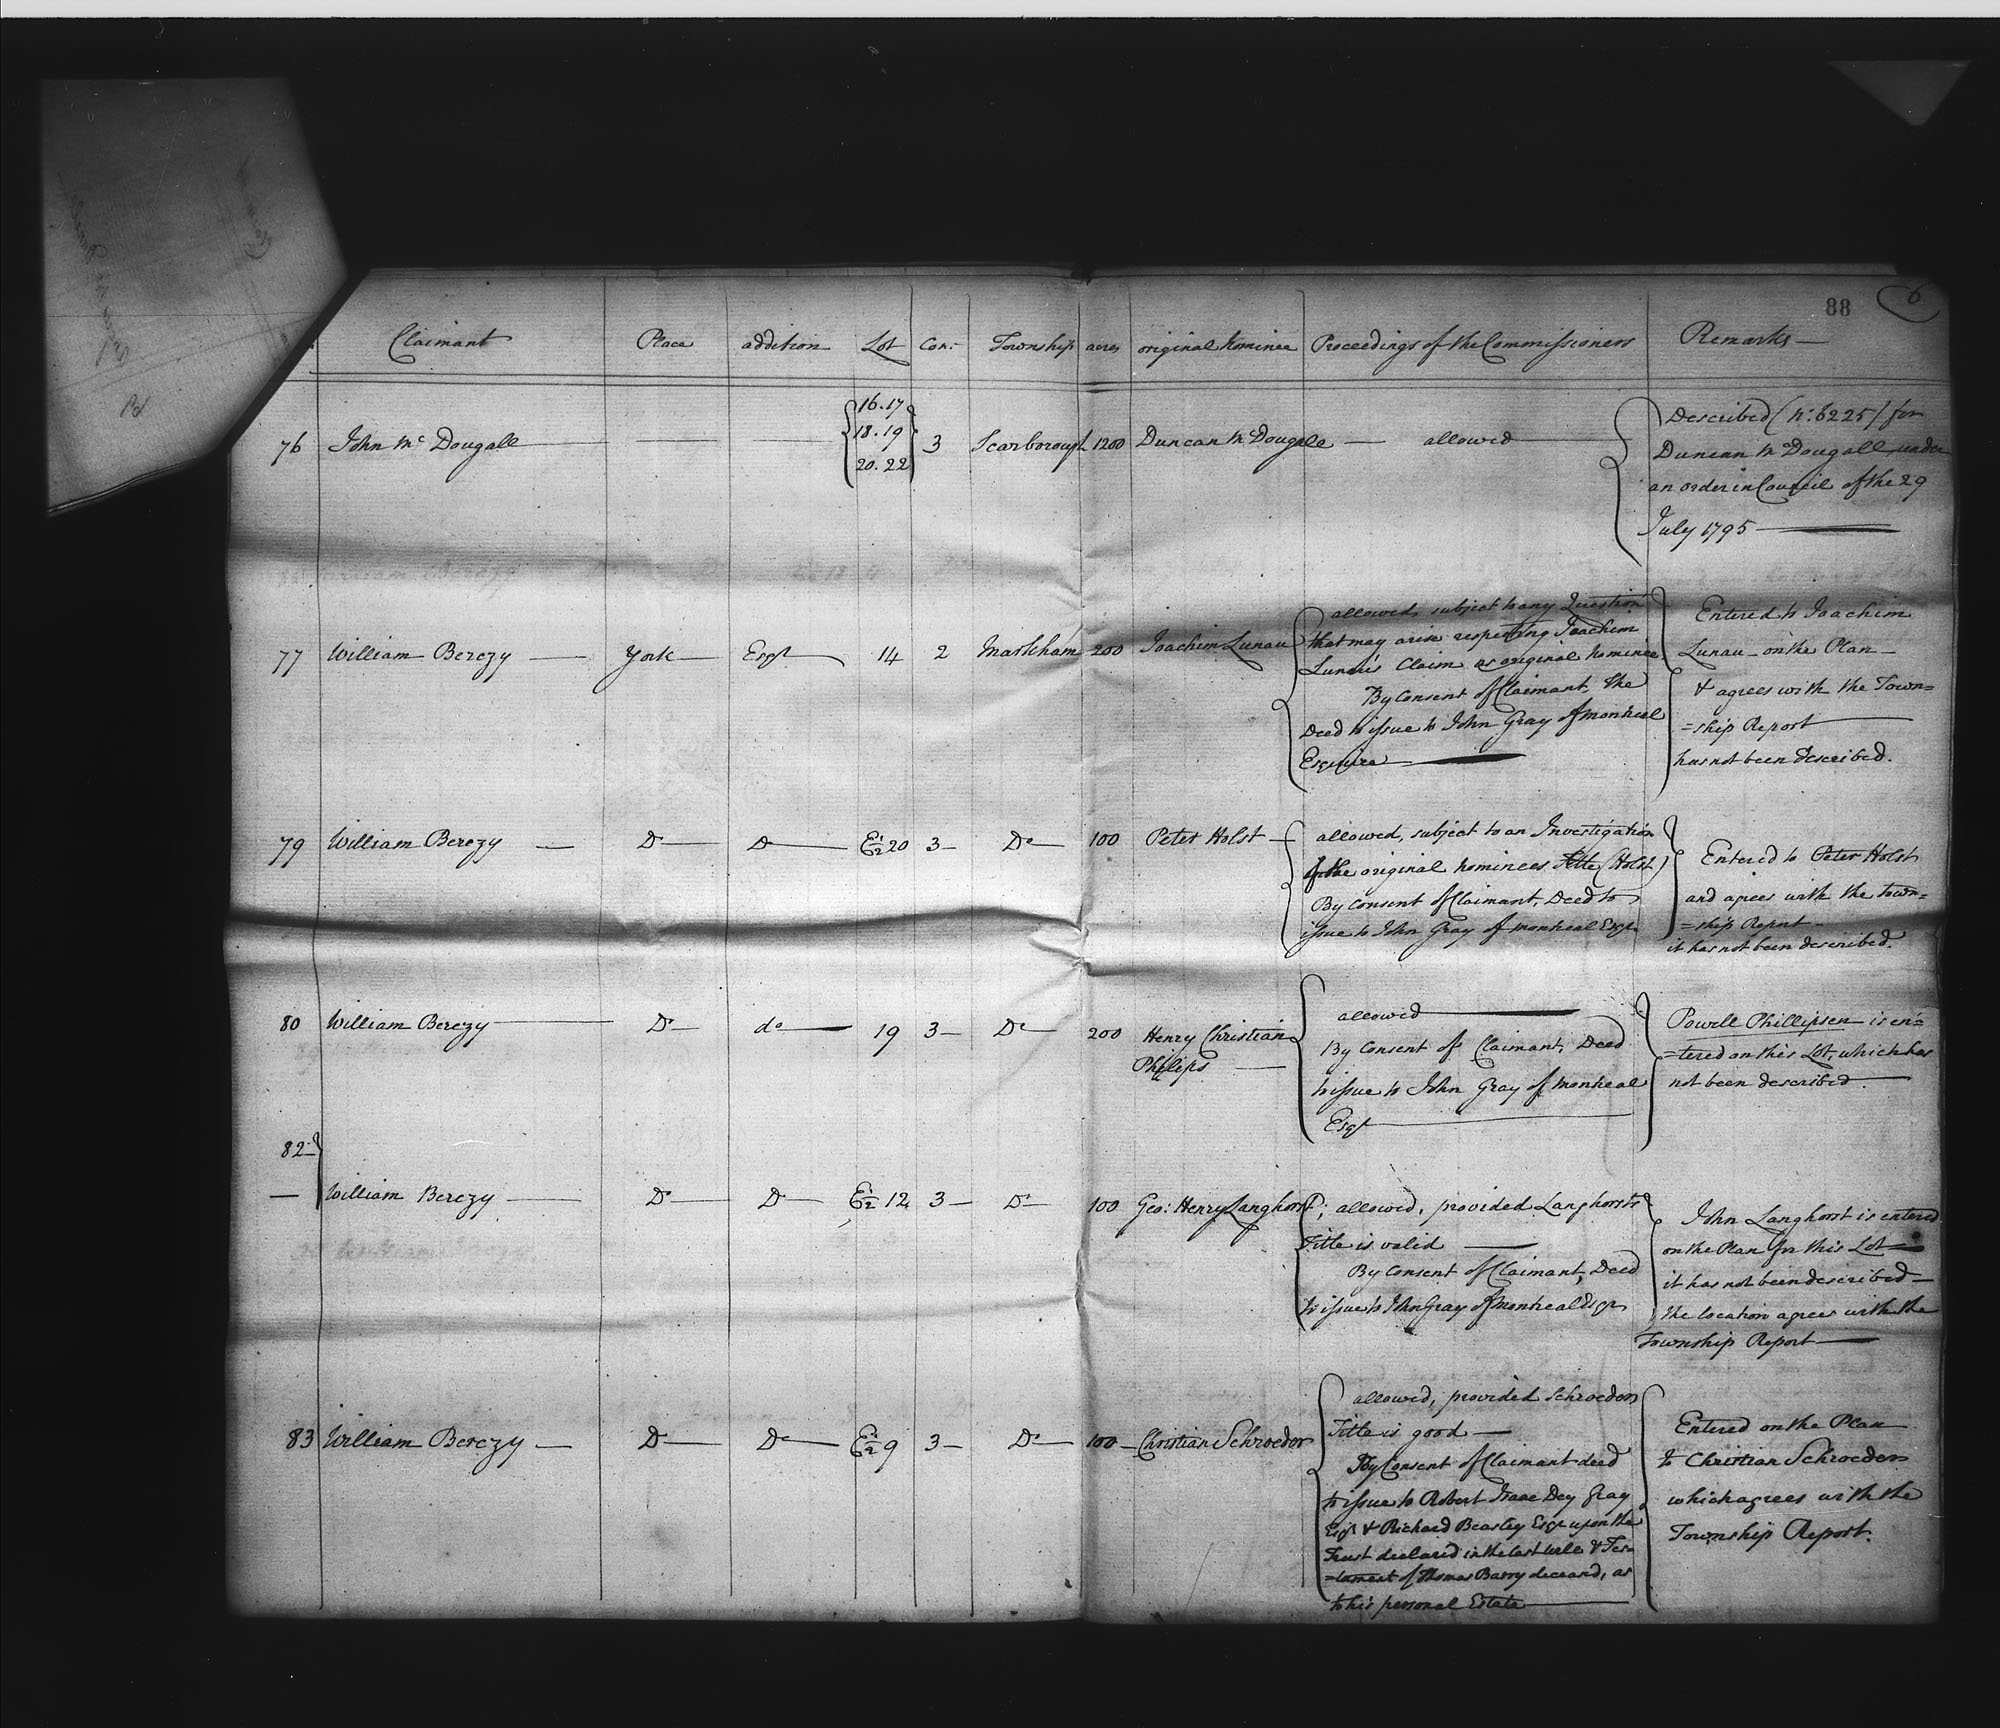 88 6
Claimant Place addition Lot Con:- Township acres original Nominee Proceedings of the Commissioners Remarks —
76 John Mc Dougall — — — 16.17 18.19 20.22 3 Scarborough 1200 Duncan McDougall — allowed —
Described (No. 6225) for
Duncan McDougall under
an order in Council of the 29
July 1795 —
77 William Berczy — York — Esqr — 14 2 Markham 200 Joachim Lunau
allowed, subject to any Question
that may arise respecting Joachim
Lunau's Claim as original Nominee.
By Consent of Claimant, the
Deed to issue to John Gray of Montreal
Esquire —
Entered to Joachim
Lunau on the Plan —
& agrees with the Town=
=ship Report —
has not been described.
79 William Berczy — Do — Do — E. 1/2 20 3 — Do — 100 Peter Holst —
allowed, subject to an Investigation
of the original Nominees Title (Holst)
By Consent of Claimant, Deed to
issue to John Gray of Montreal Esqr.
Entered to Peter Holst
and agrees with the Town=
=ship Report —
it has not been described.
80 William Berczy — Do — do — 19 3 — Do — 200 Henry Christian
Philips —
allowed —
By Consent of Claimant, Deed
to issue to John Gray of Montreal
Esqr —
Powell Phillipsen is en=
=tered on this Lot, which has
not been described. —
82 —
— William Berczy — Do — Do — E. 1/2 12 3 — Do — 100 Geo: Henry Langhorst
allowed, provided Langhorsts
Title is valid —
By Consent of Claimant, Deed
to issue to John Gray of Montreal Esqr
John Langhorst is entered
on the Plan for this Lot —
it has not been described —
the location agrees with the
Township Report —
83 William Berczy — Do — Do — E. 1/2 9 3 — Do — 100 — Christian Schroeder
allowed, provided Schroeders
Title is good —
By Consent of Claimant deed
to issue to Robert Isaac Dey Gray
Esqr & Richard Beasley Esqr upon the
Trust declared in the last Will & Tes=
=tament of Thomas Barry deceased, as
to his personal Estate —
Entered on the Plan
to Christian Schroeder
which agrees with the
Township Report.